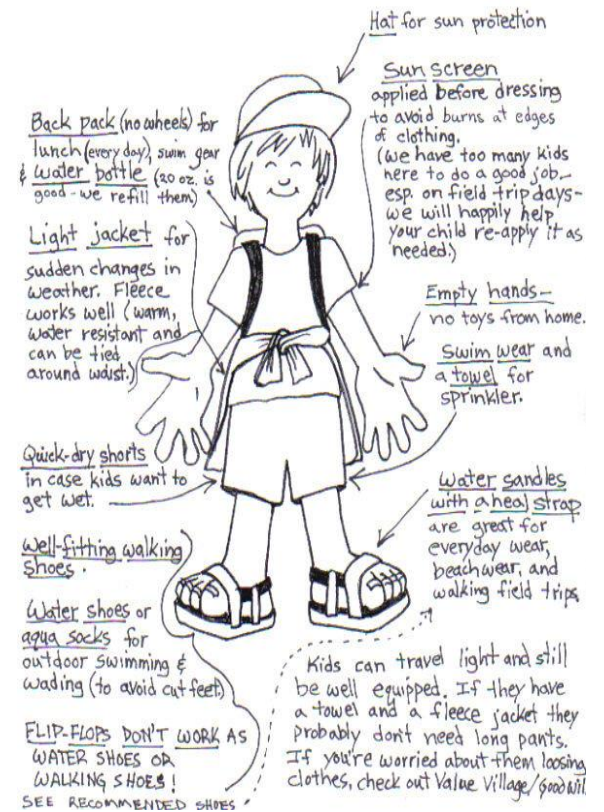 Hat for sun protection
Sun screen
applied before dressing
to avoid burns at edges
of clothing.
(we have too many kids
here to do a good job—
esp. on field trip days—
we will happily help
your child re-apply it as
needed.)
Back pack (no wheels) for
lunch (every day), swim gear
& water bottle (20 oz. is
good - we refill them)
Light jacket for
sudden changes in
weather. Fleece
works well (warm,
water resistant and
can be tied
around waist.)
Empty hands—
no toys from home.
Swim wear and
a towel for
sprinkler.
Quick-dry shorts
in case kids want to
get wet.
Water sandles
with a heal strap
are great for
everyday wear,
beachwear, and
walking field trips
Well-fitting walking
shoes.
Water shoes or
aqua socks for
outdoor swimming &
wading (to avoid cut feet)
FLIP-FLOPS DON'T WORK AS
WATER SHOES OR
WALKING SHOES!
SEE RECOMMENDED SHOES
Kids can travel light and still
be well equipped. If they have
a towel and a fleece jacket they
probably don't need long pants.
If you're worried about them loosing
clothes, check out Value Village/Goodwil